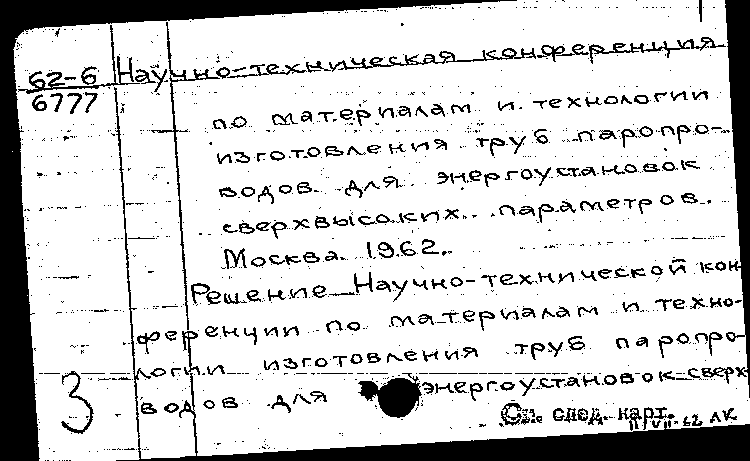 62-6
6777
Научно-техническая конференция
по материалам и технологии
изготовления труб паропро-
водов для энергоустановок
сверхвысоких параметров.
Москва. 1962.
Решение Научно-технической кон-
ференции по материалам и техно-
логии изготовления труб паропро-
водов для энергоустановок сверх-
3
См. след. карт.
11/VII-62 АК.